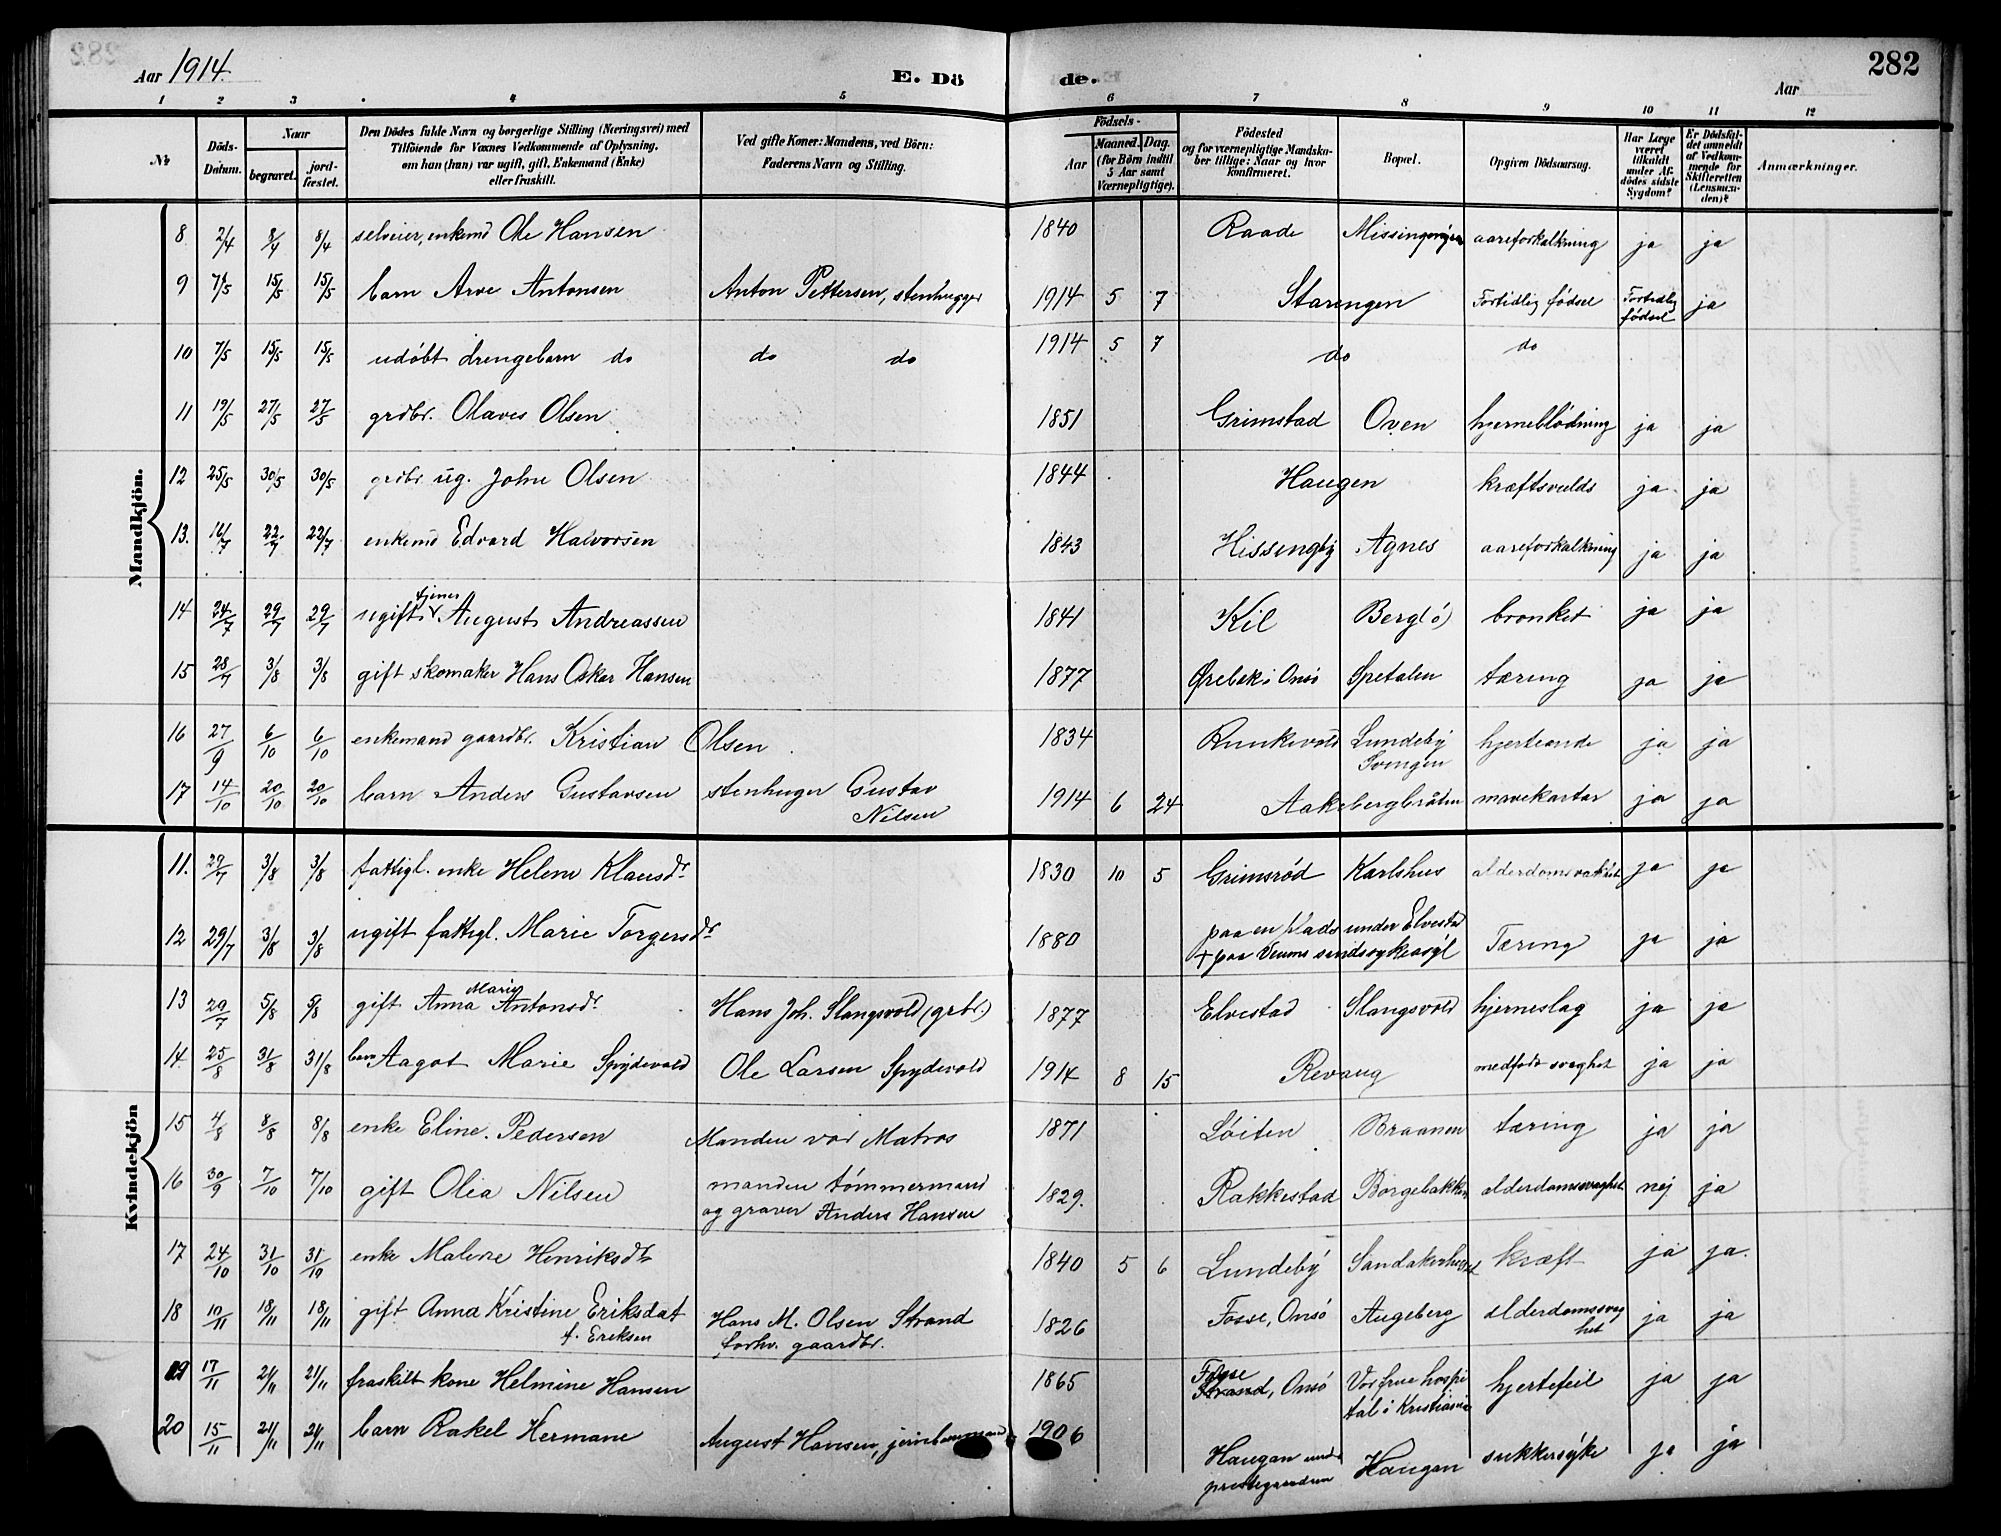 282
Aar 1914.
E. Dö de.
Aar
1 2 3 4 5 6 7 8 9 10 11 12
No
Döds-Datum.
Naar
begravet.
jordfæstet.
Den Dödes fulde Navn og borgerlige Stilling (Næringsvei) med
Tilföiende for Voxnes Vedkommende af Oplysning,
om han (hun) var ugift, gift, Enkemand (Enke)
eller fraskilt.
Ved gifte Koner: Mandens, ved Börn:
Faderens Navn og Stilling.
Födsels-
Aar
Maaned. Dag.
(for Börn indtil
5 Aar samt
Værnepligtige).
Födested
og for værnepligtige Mandskaber tillige: Naar og hvor
konfirmeret.
Bopæl.
Opgiven Dödsaarsag.
Har Læge
været
tilkaldt
under Afdödes sidste
Sygdom?
Er Dödsfaldet anmeldt
af Vedkommende for
Skifteretten
(Lensmanden)?
Anmærkninger.
Mandkjön.
8 2/4 8/4 8/4 selveier, enkemd Ole Hansen 1840 Raade aareforkalkning ja ja
9 7/5 15/5 15/5 barn Arve Antonsen Anton Pettersen, stenhugger 1914 5 7 Starengen Fortidlig födsel Fortidlig födsel ja
10 7/5 15/5 15/5 udöbt drengebarn do do do 1914 5 7 do do
11 19/5 27/5 27/5 grdbr. Olaves Olsen 1851 Grimstad Oven hjerneblödning ja ja
12 25/5 30/5 30/5 grdbr ug. John Olsen 1844 Haugen kræftsvulds ja ja
13. 16/7 22/7 22/7 enkemd Edvard Halvorsen 1843 Hissengby Agnes aareforkalkning ja ja
14 24/7 29/7 29/7 ugift tjener August Andreassen 1841 Kil bronket ja ja
15 28/7 3/8 3/8 gift skomaker Hans Oskar Hansen 1877 Ørebek i Onsö Spetalen tæring ja ja
16 27/9 6/10 6/10 enkemand gaardbr. Kristian Olsen 1834 Runkevold Lundeby Svengen ja ja
17 14/10 20/10 20/10 barn Anders Gustavsen stenhuger Gustav Nilsen 1914 6 24 Aakebergbråten mavekatar ja ja
Kvindekjön
11. 29/7 3/8 3/8 fattigl. enke Helene Klausdr 1830 10 5 Grimsröd Karlshus ja ja
12 29/7 3/8 3/8 ugift fattigl. Marie Torgersdr 1880 paa en Plads under Elvestad
+ paa Veums sindssykeasyl Tæring ja ja
13 29/7 5/8 5/8 gift Anna Marie Antonsdr. Hans Joh. Slangsvold (grbr.) 1877 Elvestad Slangsvold hjerneslag ja ja
14. 25/8 31/8 31/8 barn Aagot Marie Spydevold Ole Larsen Spydevold 1914 8 15 Revaug medfödt svaghet ja ja
15 4/8 8/8 8/8 enke Eline Pedersen Manden var Matros 1871 Löiten Braanen tæring ja ja
16 30/9 7/10 7/10 gift Olea Nilsen manden tömmermand
og graver Anders Hansen 1829. Rakkestad Borgebakken alderdomssvaghet nej ja
17 24/10 31/10 31/10 enke Malene Henriksdtr 1840 5 6 Lundeby kræft ja ja.
18 10/11 18/11 18/11 gift Anna Kristine Eriksdat
f. Eriksen Hans M. Olsen Strand
forhv. gaardbr. 1826 Fosse, Onsö Augeberg alderdomssvaghet ja ja
19 17/11 21/11 21/11 fraskilt kone Helmine Hansen 1865 Fosse Strand, Onsö Vor frue hospital i Kristiania hjertefeil ja ja
20 15/11 21/11 21/11 barn Rakel Hermane August Hansen, 1906 Haugan und. prestegaarden Haugan sukkersyke ja ja